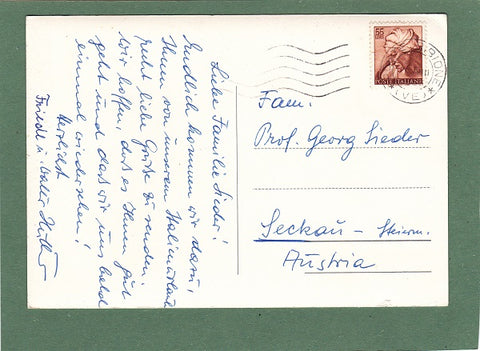 Liebe Familie Sieder!
Endlich kommen wir dazu,
Ihnen von unserem Italienurlaub
recht liebe Grüße zu senden.
Wir hoffen, daß es Ihnen gut
geht und daß wir uns bald
einmal wiedersehen!
Herzlichst
Friedl u.
55
POSTE ITALIANE
BIONE
(VE)
Fam.
Prof. Georg Sieder
Seckau - Steierm.
Austria